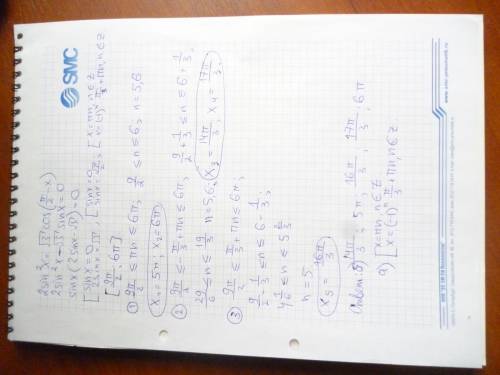 SMC
2sin²x = √3 cos(π/2 - x)
2sin²x - √3 sinx = 0
sinx (2sinx - √3) = 0
[sinx = 0, [sinx = 0, [x = πn, n∈Z
[9π/2; 6π]
① 9π/2 ≤ πn ≤ 6π, 9/2 ≤ n ≤ 6; n = 5,6
x₁ = 5π; x₂ = 6π
② 9π/2 ≤ -π/3 + πn ≤ 6π; 9/2 + 1/3 ≤ n ≤ 6 + 1/3,
29/6 ≤ n ≤ 19/3 n = 5,6; x₃ = 14π/3; x₄ = 17π/3;
③ 9π/2 ≤ π/3 + πn ≤ 6π;
9/2 - 1/3 ≤ n ≤ 6 - 1/3;
4 1/6 ≤ n ≤ 5 2/3
n = 5
x₅ = 16π/3
Ответ: б) 14π/3; 5π, 16π/3, 17π/3; 6π
а) [x = πn, n∈Z
[x = (-1)ⁿ π/3 + πn, n∈Z